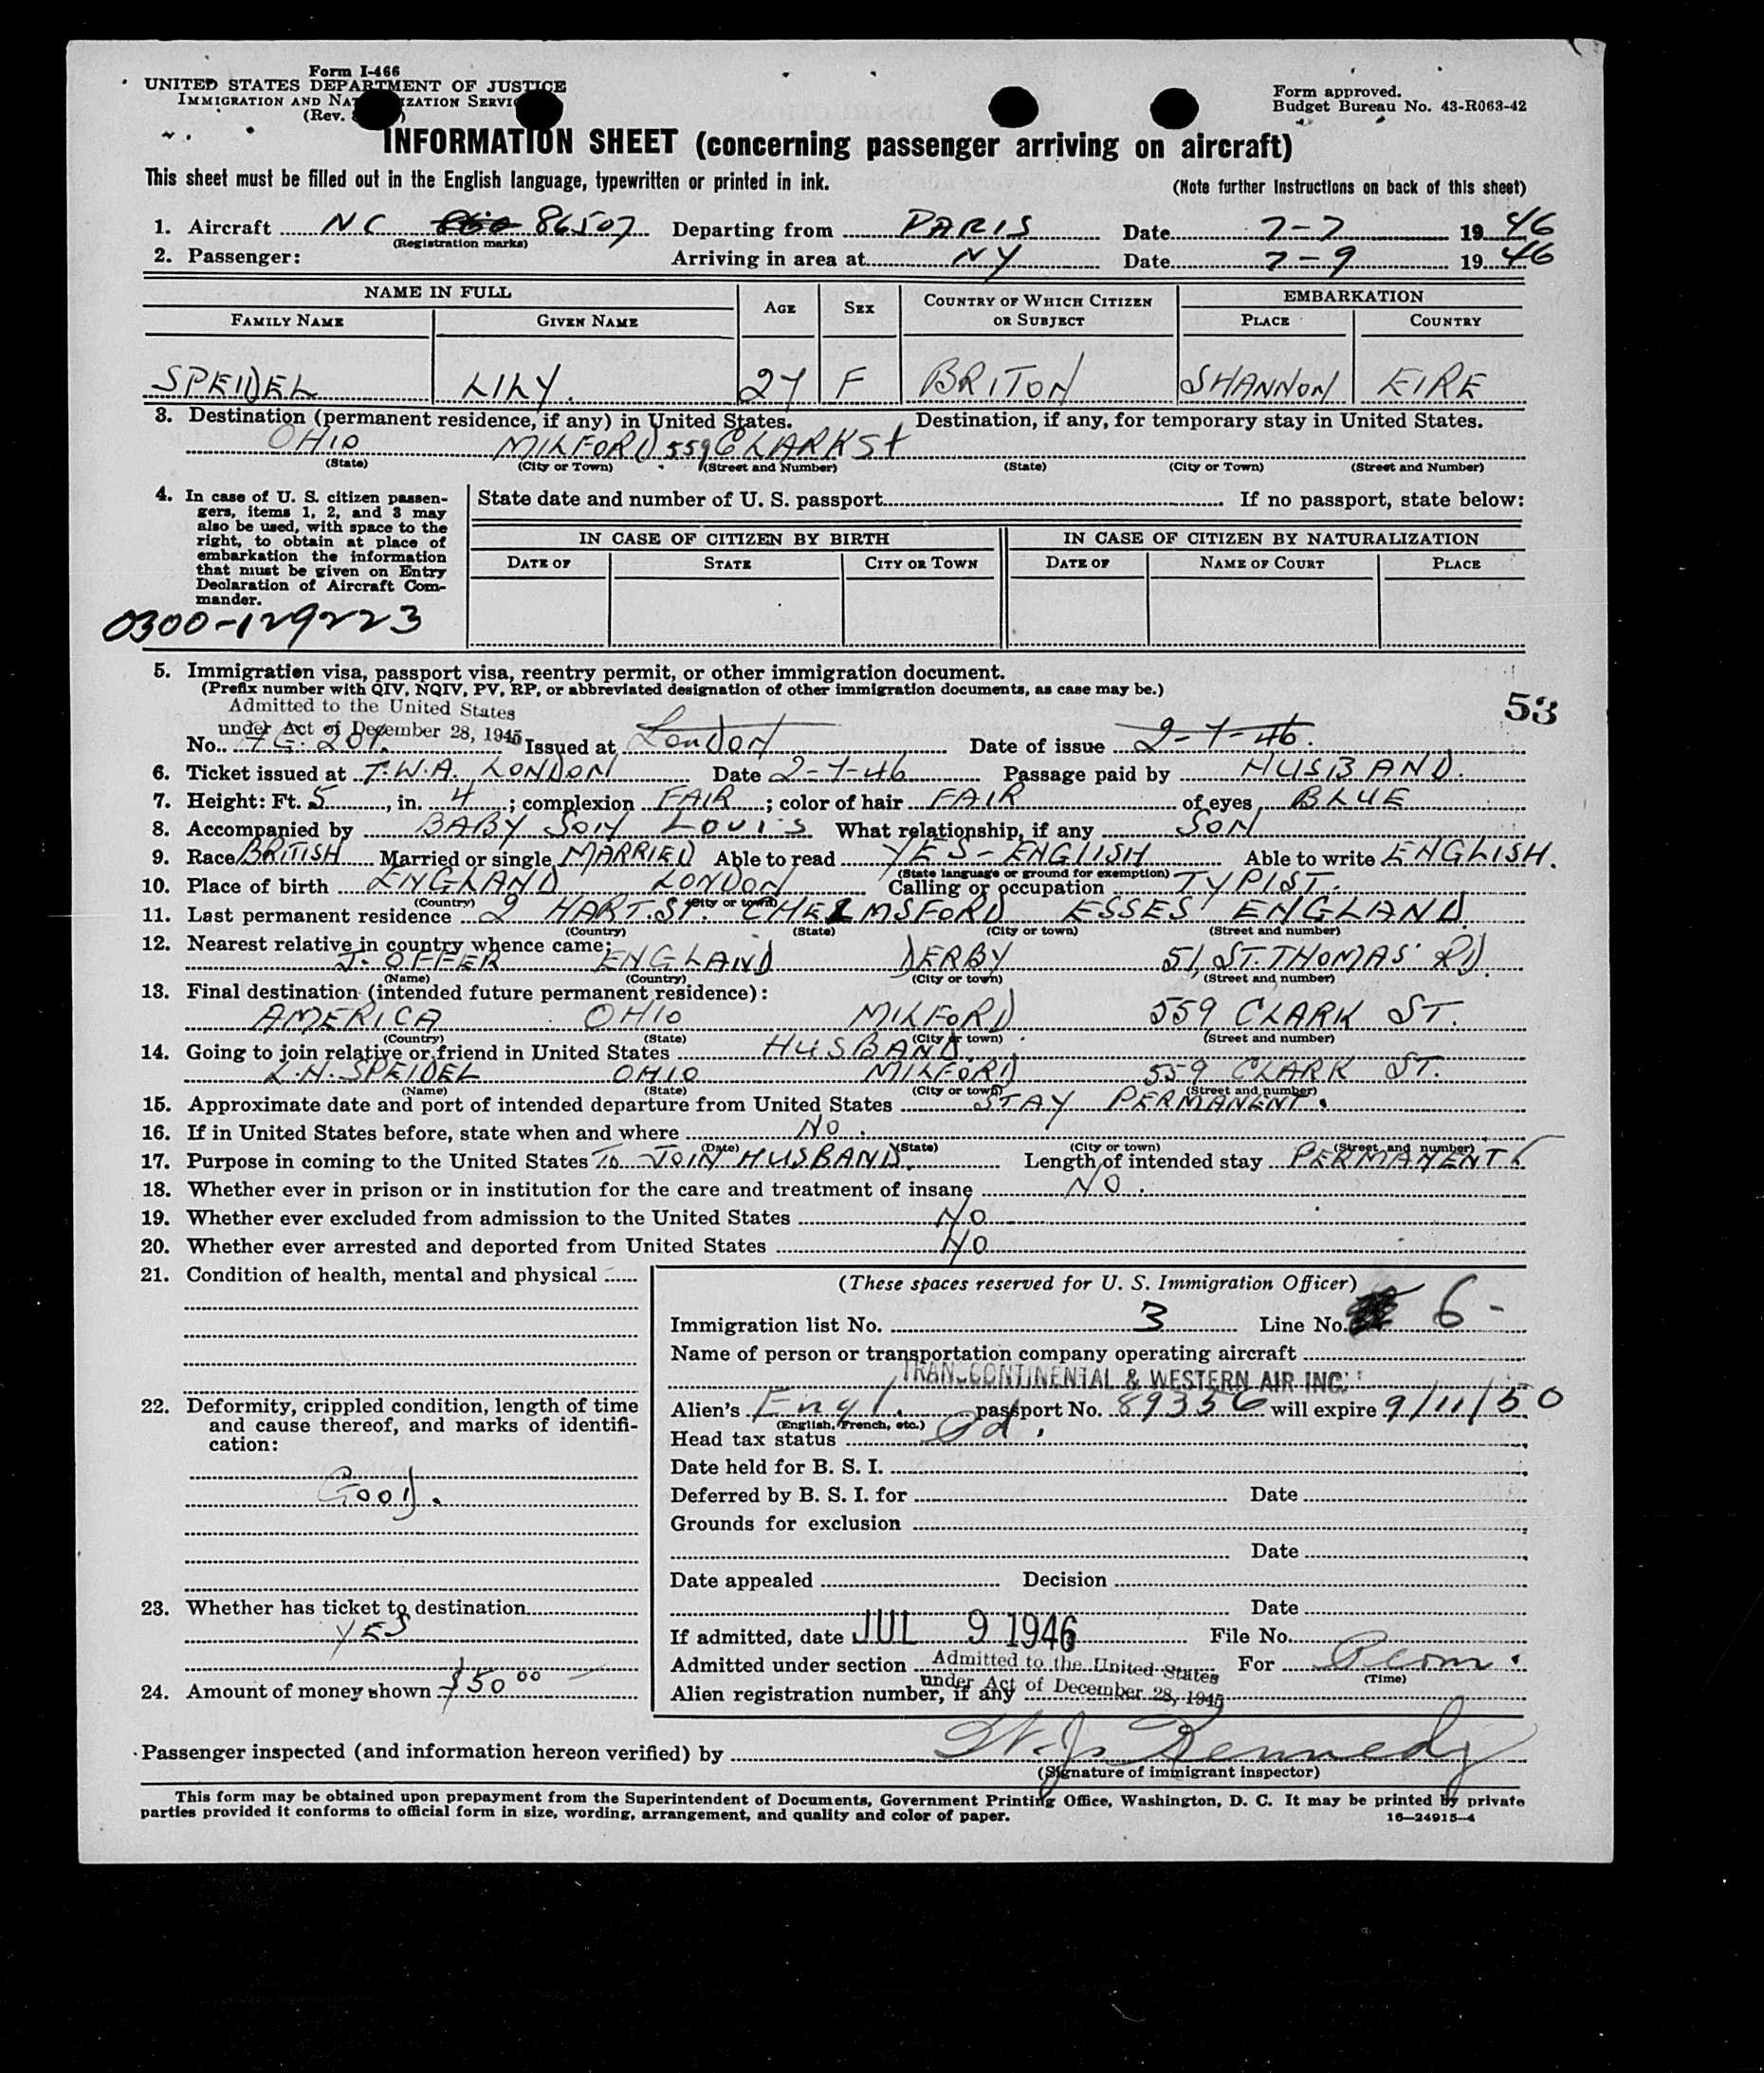 Form I-466
UNITED STATES DEPARTMENT OF JUSTICE
IMMIGRATION AND NATURALIZATION SERVICE
(Rev.
Form approved.
Budget Bureau No. 43-R063-42
INFORMATION SHEET (concerning passenger arriving on aircraft)
This sheet must be filled out in the English language, typewritten or printed in ink.
(Note further instructions on back of this sheet)
1. Aircraft NC 86507 Departing from PARIS Date 7-7 1946
(Registration marks)
2. Passenger: Arriving in area at NY Date 7-9 1946
NAME IN FULL AGE SEX COUNTRY OF WHICH CITIZEN OR SUBJECT EMBARKATION
FAMILY NAME GIVEN NAME PLACE COUNTRY
SPEIDEL LILY. 27 F BRITON SHANNON EIRE
3. Destination (permanent residence, if any) in United States. Destination, if any, for temporary stay in United States.
OHIO MILFORD 559 CLARK St
(State) (City or Town) (Street and Number) (State) (City or Town) (Street and Number)
4. In case of U. S. citizen passengers, items 1, 2, and 3 may also be used, with space to the right, to obtain at place of embarkation the information that must be given on Entry Declaration of Aircraft Commander.
State date and number of U. S. passport If no passport, state below:
IN CASE OF CITIZEN BY BIRTH IN CASE OF CITIZEN BY NATURALIZATION
DATE OF STATE CITY OR TOWN DATE OF NAME OF COURT PLACE
0300-129223
5. Immigration visa, passport visa, reentry permit, or other immigration document.
(Prefix number with QIV, NQIV, PV, RP, or abbreviated designation of other immigration documents, as case may be.)
53
Admitted to the United States
under Act of December 28, 1945
No. 201. Issued at London Date of issue 2-7-46.
6. Ticket issued at T.W.A. LONDON Date 2-7-46 Passage paid by HUSBAND.
7. Height: Ft. 5, in. 4; complexion FAIR; color of hair FAIR of eyes BLUE
8. Accompanied by BABY SON LOUIS What relationship, if any SON
9. Race BRITISH Married or single MARRIED Able to read YES - ENGLISH Able to write ENGLISH.
(State language or ground for exemption)
10. Place of birth ENGLAND LONDON Calling or occupation TYPIST.
(Country) (City or town)
11. Last permanent residence 2 HART ST. CHELMSFORD ESSES ENGLAND.
(Country) (State) (City or town) (Street and number)
12. Nearest relative in country whence came:
J. OFFER ENGLAND DERBY 51, ST. THOMAS' RD.
(Name) (Country) (City or town) (Street and number)
13. Final destination (intended future permanent residence):
AMERICA OHIO MILFORD 559 CLARK ST.
(Country) (State) (City or town) (Street and number)
14. Going to join relative or friend in United States HUSBAND.
L.H. SPEIDEL OHIO MILFORD 559 CLARK ST.
(Name) (State) (City or town) (Street and number)
15. Approximate date and port of intended departure from United States STAY PERMANENT.
16. If in United States before, state when and where NO.
(Date) (State) (City or town) (Street and number)
17. Purpose in coming to the United States TO JOIN HUSBAND. Length of intended stay PERMANENT.
18. Whether ever in prison or in institution for the care and treatment of insane NO.
19. Whether ever excluded from admission to the United States NO
20. Whether ever arrested and deported from United States NO
21. Condition of health, mental and physical
22. Deformity, crippled condition, length of time and cause thereof, and marks of identification:
GOOD.
23. Whether has ticket to destination
YES
24. Amount of money shown $50 00
(These spaces reserved for U. S. Immigration Officer)
Immigration list No. 3 Line No. 6 -
Name of person or transportation company operating aircraft
TRANSCONTINENTAL & WESTERN AIR INC.
Alien's Engl. passport No. 89356 will expire 9/11/50
(English, French, etc.)
Head tax status Pd.
Date held for B. S. I.
Deferred by B. S. I. for Date
Grounds for exclusion
Date
Date appealed Decision
Date
If admitted, date JUL 9 1946 File No.
Admitted under section Admitted to the United States For Perm.
(Time)
under Act of December 28, 1945
Alien registration number, if any
Passenger inspected (and information hereon verified) by W. J. Kennedy
(Signature of immigrant inspector)
This form may be obtained upon prepayment from the Superintendent of Documents, Government Printing Office, Washington, D. C. It may be printed by private
parties provided it conforms to official form in size, wording, arrangement, and quality and color of paper.
16—24915-4